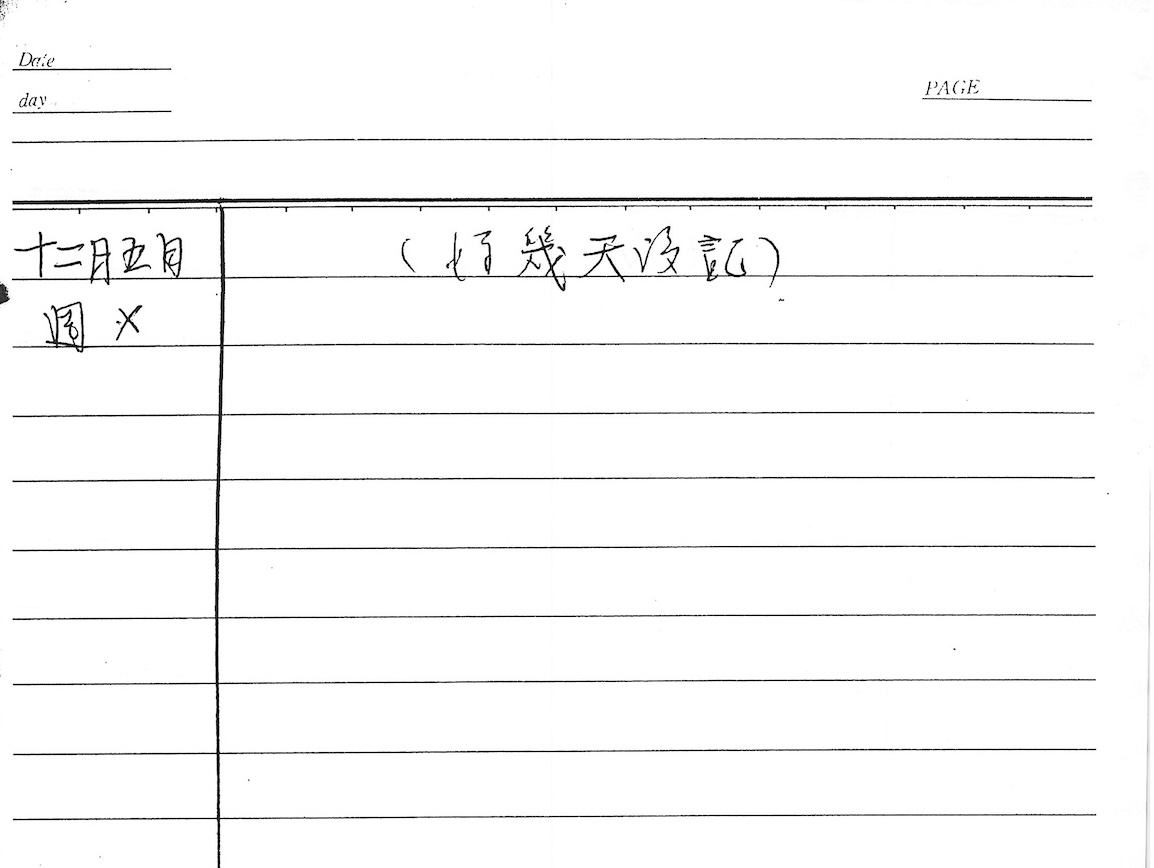 Date
day
PAGE
十二月五日 （好幾天沒記）
週 ×